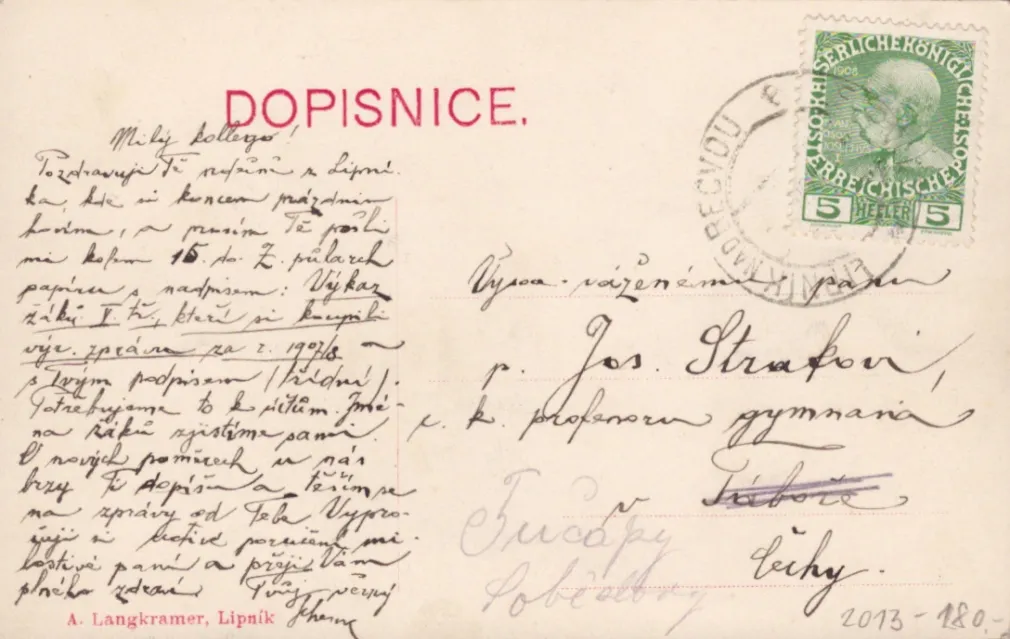 DOPISNICE.
Milý kollego!
Pozdravuji Tě srdečně z Lipní-
ka, kde si koncem prázdnin
hovím, a prosím Tě pošli
mi kolem 15. do Z. půlarch
papíru s nadpisem: Výkaz
žáků V. tř., kteří si koupili
výr. zprávu za r. 1907/8 –
s Tvým podpisem (třídní).
Potřebujeme to k účtům. Jmé-
na žáků zjistíme sami.
O nových poměrech u nás
brzy Ti dopíšu a těším se
na zprávy od Tebe. Vypro-
šuji si uctivé poručení mi-
lostivé paní a přeji Vám
plného zdraví Tvůj věrný
A. Langkramer, Lipník
KAISERLICHE KÖNIGLICHE
ÖSTERREICHISCHE POST
1908
5 HELLER 5
LIPNÍK NAD BEČVOU
Vysoce váženému panu
p. Jos. Strakovi,
c. k. profesoru gymnasia
v Táboře
Čechy.
Tučapy
Soběslavy
2013-180.-